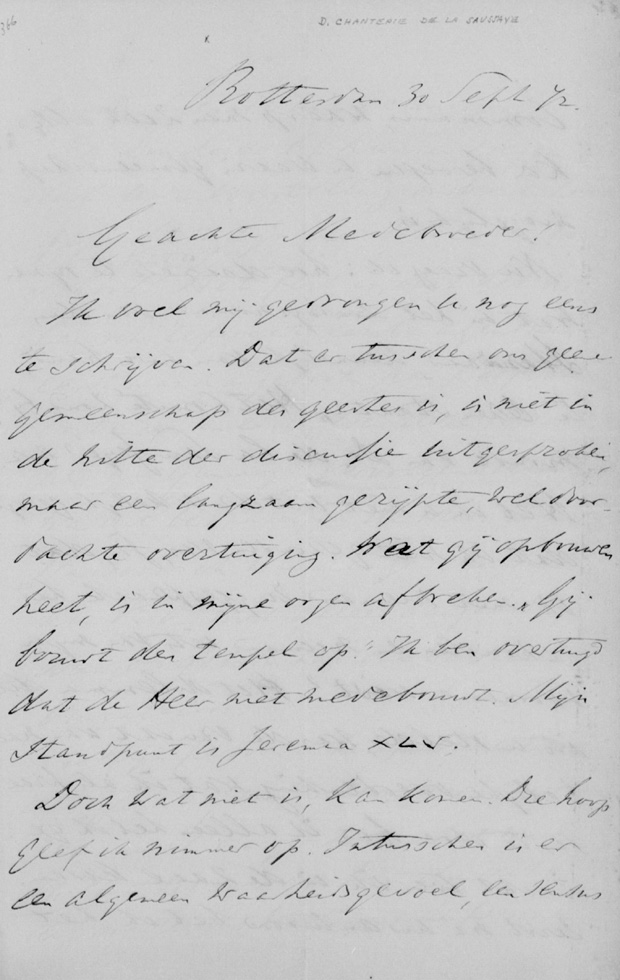 366
D. CHANTEPIE DE LA SAUSSAYE
Rotterdam 30 Sept 72.
Geachte Medebroeder!
Ik voel mij gedrongen U nog eens
te schrijven. Dat er tusschen ons geen
gemeenschap des geestes is, is niet in
de hitte der discussie uitgesproken,
maar een langzaam gerijpte, wel door-
dachte overtuiging. Wat gij opbouwen
heet, is in mijne oogen afbreken. „Gij
bouwt den tempel op." Ik ben overtuigd
dat de Heer niet medebouwt. Mijn
standpunt is Jeremia XLV.
Doch wat niet is, kan komen. Die hoop
geef ik nimmer op. Intusschen is er
een algemeen waarheidsgevoel, een sensus